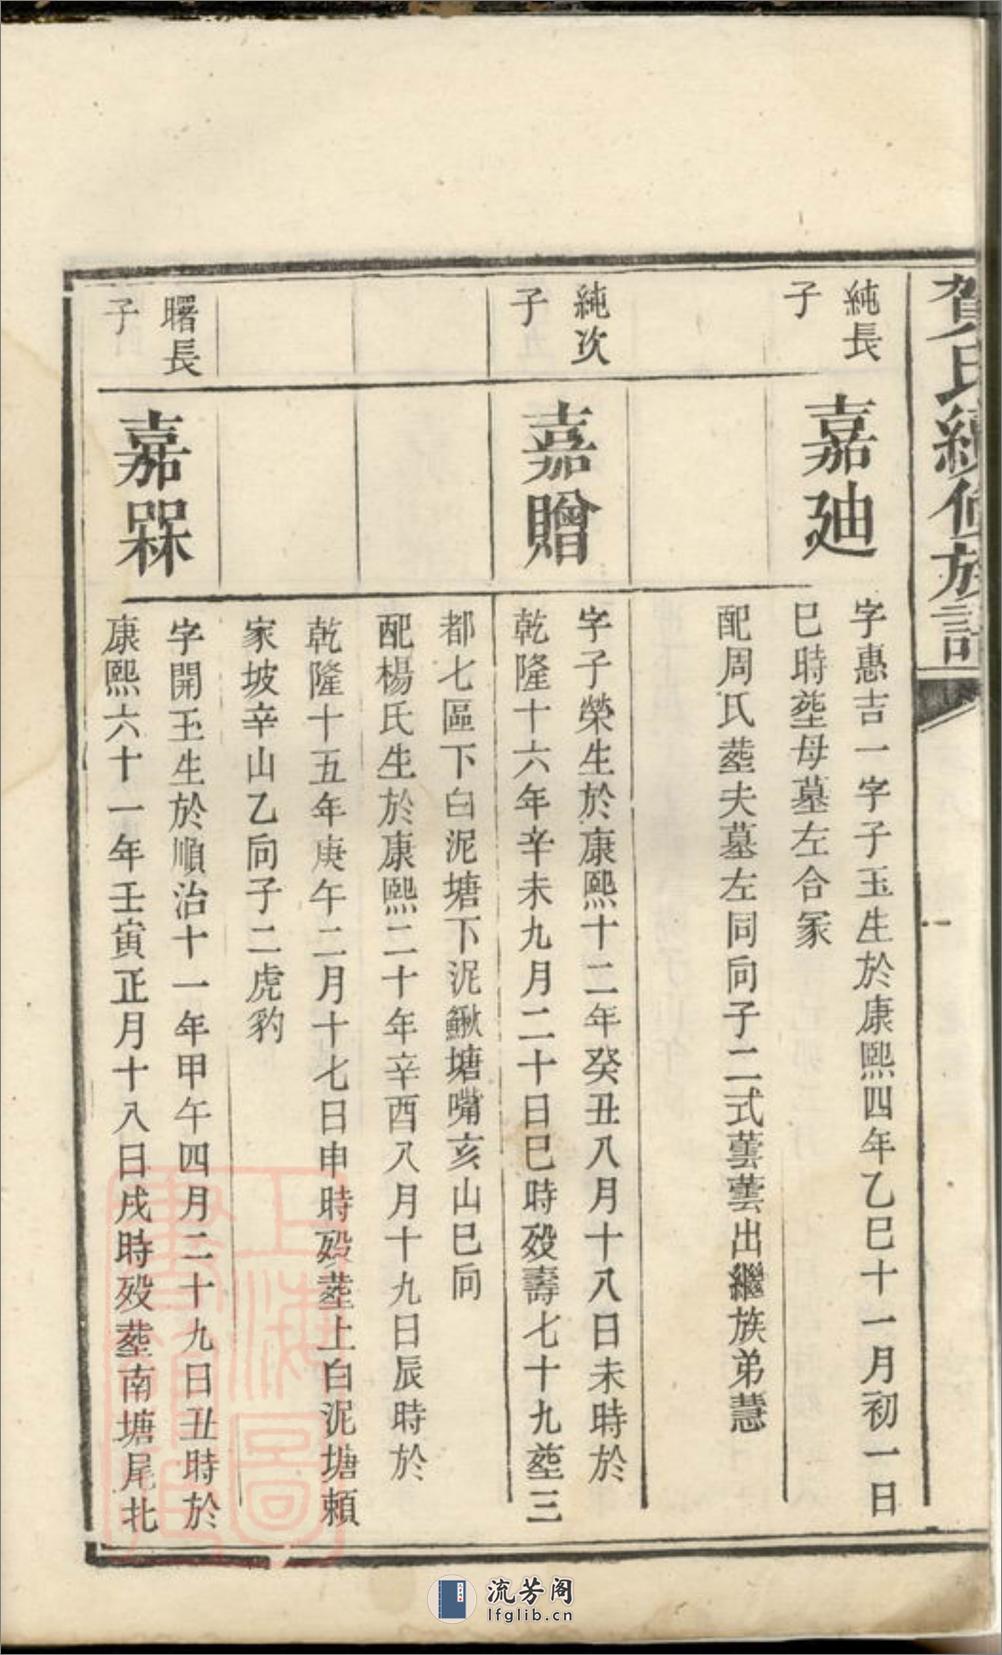 賀氏續修族譜
純長子
嘉廸
字惠吉一字子玉生於康熙四年乙巳十一月初一日
巳時塟母墓左合冢
配周氏塟夫墓左同向子二式蕓蕓出繼族弟慧
純次子
嘉贈
字子榮生於康熙十二年癸丑八月十八日未時於
乾隆十六年辛未九月二十日巳時歿壽七十九塟三
都七區下白泥塘下泥鰍塘嘴亥山巳向
配楊氏生於康熙二十年辛酉八月十九日辰時於
乾隆十五年庚午二月十七日申時歿塟上白泥塘賴
家坡辛山乙向子二虎豹
曙長子
嘉槑
字開玉生於順治十一年甲午四月二十九日丑時於
康熙六十一年壬寅正月十八日戌時歿塟南塘尾北
上海圖書館藏
流芳阁
lfglib.cn